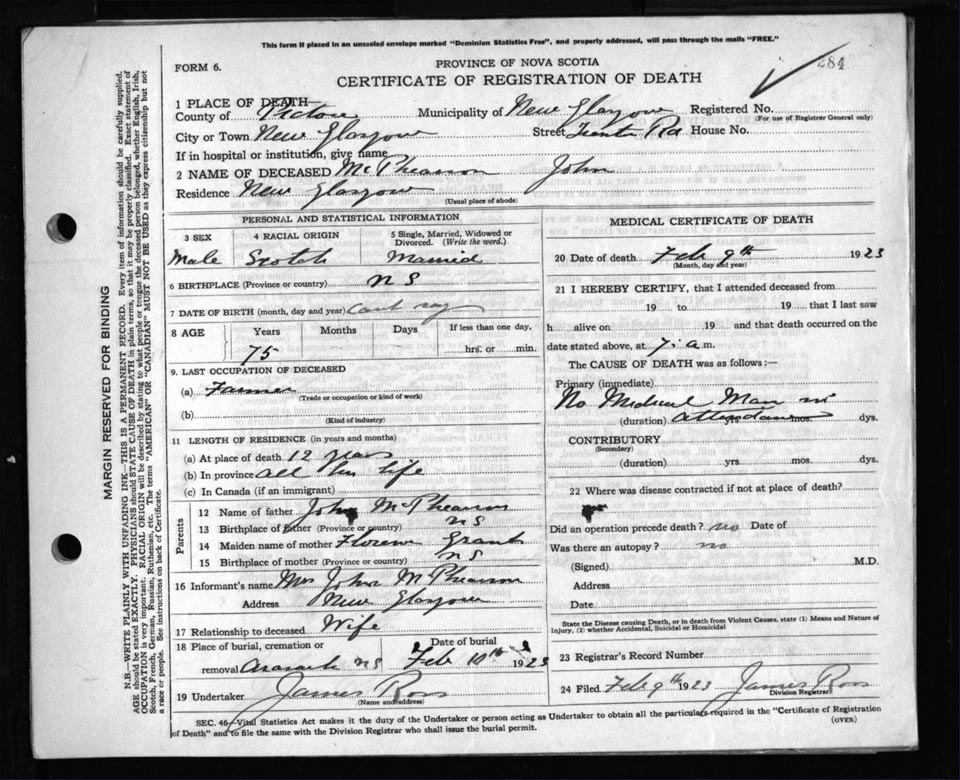 This form if placed in an unsealed envelope marked "Dominion Statistics Free", and properly addressed, will pass through the mails "FREE."
FORM 6.
PROVINCE OF NOVA SCOTIA
284
CERTIFICATE OF REGISTRATION OF DEATH
1 PLACE OF DEATH—
County of Pictou Municipality of New Glasgow Registered No.
(For use of Registrar General only)
City or Town New Glasgow Street Trenton Rd House No.
If in hospital or institution, give name
2 NAME OF DECEASED McPhearson John
Residence New Glasgow
(Usual place of abode)
PERSONAL AND STATISTICAL INFORMATION
3 SEX 4 RACIAL ORIGIN 5 Single, Married, Widowed or Divorced. (Write the word.)
Male Scotch Married
6 BIRTHPLACE (Province or country) NS
7 DATE OF BIRTH (month, day and year) Cant say
8 AGE Years Months Days If less than one day,
75 hrs. or min.
9. LAST OCCUPATION OF DECEASED
(a) Farmer
(Trade or occupation or kind of work)
(b)
(Kind of industry)
11 LENGTH OF RESIDENCE (in years and months)
(a) At place of death 12 years
(b) In province all his life
(c) In Canada (if an immigrant)
Parents
12 Name of father John McPhearson
13 Birthplace of father (Province or country) NS
14 Maiden name of mother Florence Grant
15 Birthplace of mother (Province or country) NS
16 Informant's name Mrs John McPhearson
Address New Glasgow
17 Relationship to deceased Wife
18 Place of burial, cremation or Date of burial
removal NS Feb 10th 1923
19 Undertaker James Ross
(Name and address)
MEDICAL CERTIFICATE OF DEATH
20. Date of death Feb 9th 1923
(Month, day and year)
21 I HEREBY CERTIFY, that I attended deceased from
19 to 19 that I last saw
h alive on 19 and that death occurred on the
date stated above, at 7. a m.
The CAUSE OF DEATH was as follows:—
Primary (immediate)
No Medical Man in
(duration) attendance yrs. mos. dys.
CONTRIBUTORY
(Secondary)
(duration) yrs. mos. dys.
22 Where was disease contracted if not at place of death?
Did an operation precede death? no Date of
Was there an autopsy? no
(Signed) M.D.
Address
Date
State the Disease causing Death, or in death from Violent Causes, state (1) Means and Nature of
Injury, (2) whether Accidental, Suicidal or Homicidal
23 Registrar's Record Number
24 Filed Feb 9th 1923 James Ross
Division Registrar
SEC. 46—Vital Statistics Act makes it the duty of the Undertaker or person acting as Undertaker to obtain all the particulars required in the "Certificate of Registration
of Death" and to file the same with the Division Registrar who shall issue the burial permit.
(OVER)
MARGIN RESERVED FOR BINDING
N.B.—WRITE PLAINLY WITH UNFADING INK—THIS IS A PERMANENT RECORD. Every item of information should be carefully supplied.
AGE should be stated EXACTLY. PHYSICIANS should STATE CAUSE OF DEATH in plain terms, so that it may be properly classified. Exact statement of
OCCUPATION is very important. RACIAL ORIGIN will be described by stating to what people or tongue the deceased person belonged, whether English, Irish,
Scotch, French, German, Russian, Ruthenian, etc. The terms "AMERICAN" OR "CANADIAN" MUST NOT BE USED as they express citizenship but not
a race or people. See instructions on back of Certificate.